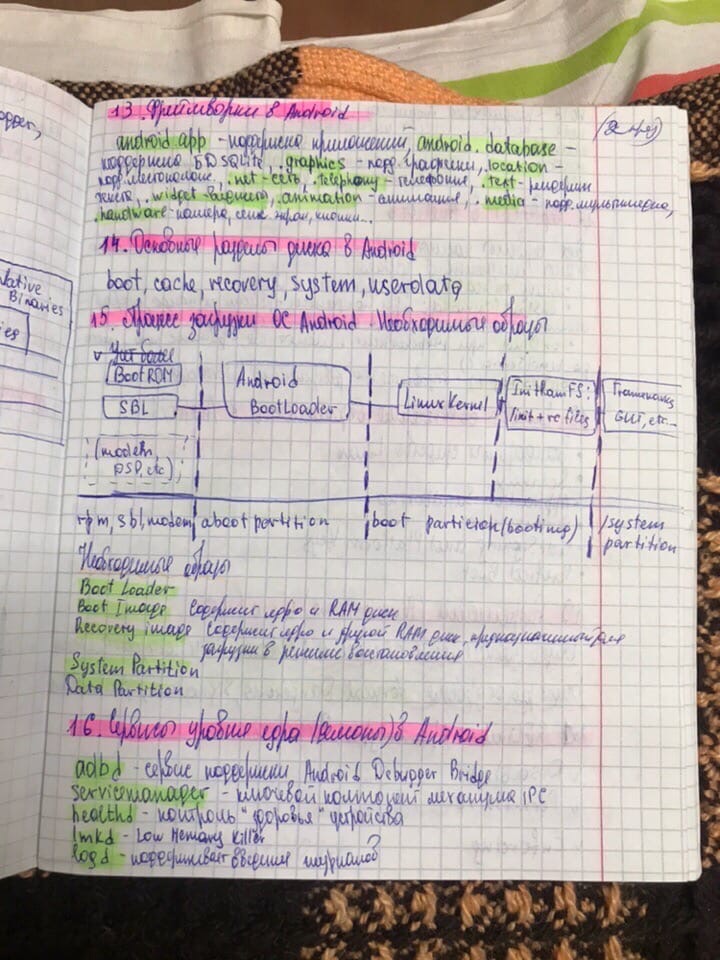 opper,
ative
Binaries
ies
13. Фреймворки в Android
android.app - поддержка приложений, android.database -
поддержка БД SQLite, .graphics - подд. графики, .location -
подд. местополож, .net - сеть, .telephony - телефония, .text - рендеринг
текста, .widget - виджеты, .animation - анимация, .media - подд. мультимедиа,
.hardware - камера, сенс. экран, кнопки...
14. Основные разделы диска в Android
boot, cache, recovery, system, userdata
15. Процесс загрузки ОС Android. Необходимые образы
BootROM
SBL
(modem,
DSP, etc)
Android
BootLoader
Linux Kernel
InitRamFS:
/init + rc files
Frameworks
GUI, etc...
rpm, sbl, modem
aboot partition
boot particion (bootimg)
/system
partition
Необходимые образы
Boot Loader
Boot Image Содержит ядро и RAM диск
Recovery image Содержит ядро и другой RAM диск, предназначенный для
загрузки в режиме восстановления
System Partition
Data Partition
16. Сервисы уровня ядра (демоны) в Android
adbd - сервис поддержки Android Debugger Bridge
servicemanager - ключевой компонент механизма IPC
healthd - контроль "здоровья" устройства
lmkd - Low Memory Killer
logd - поддерживает введения журналов